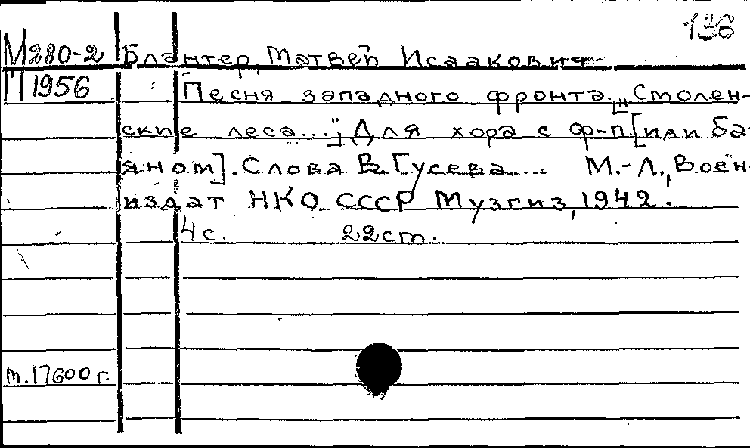 136
М280-2 Блантер, Матвей Исаакович
П1956 Песня западного фронта. „Смолен-
ские леса..."; Для хора с ф-п [или ба-
яном]. Слова В. Гусева... М.-Л., Воен-
издат НКО СССР Музгиз, 1942.
4с. 22см.
т.17600 г.